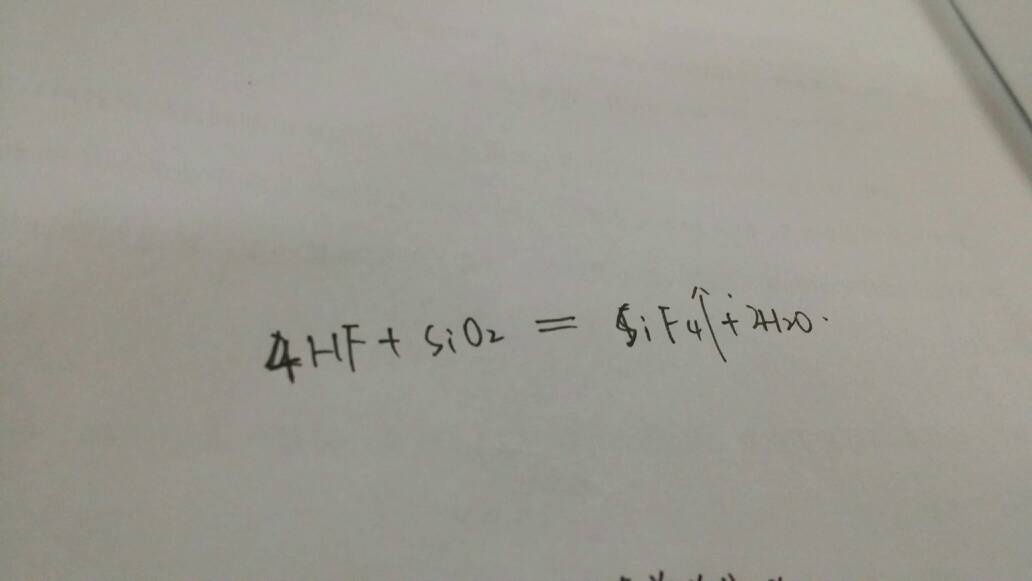 4HF + SiO₂ = SiF₄↑ + 2H₂O.